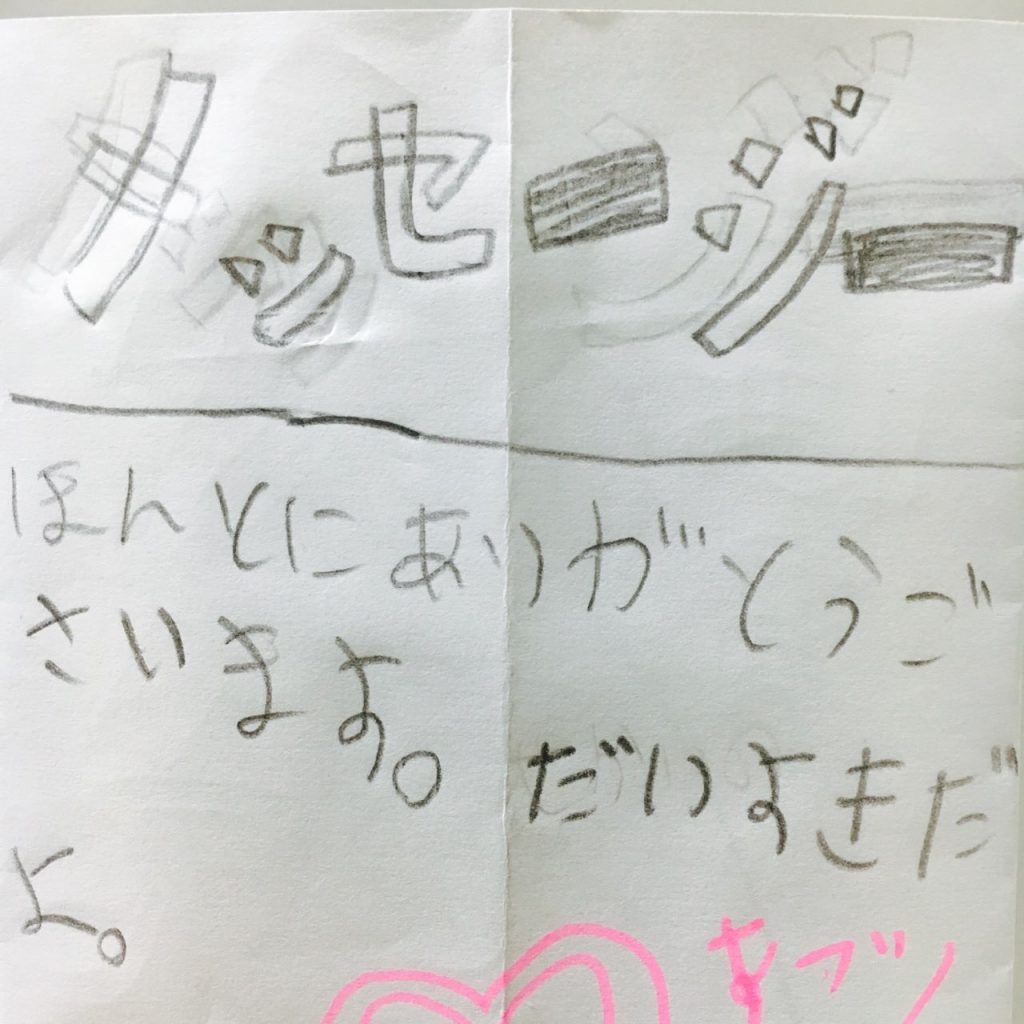 メッセージー
ほんとにありがとうご
さいます。
だいすきだ
よ。